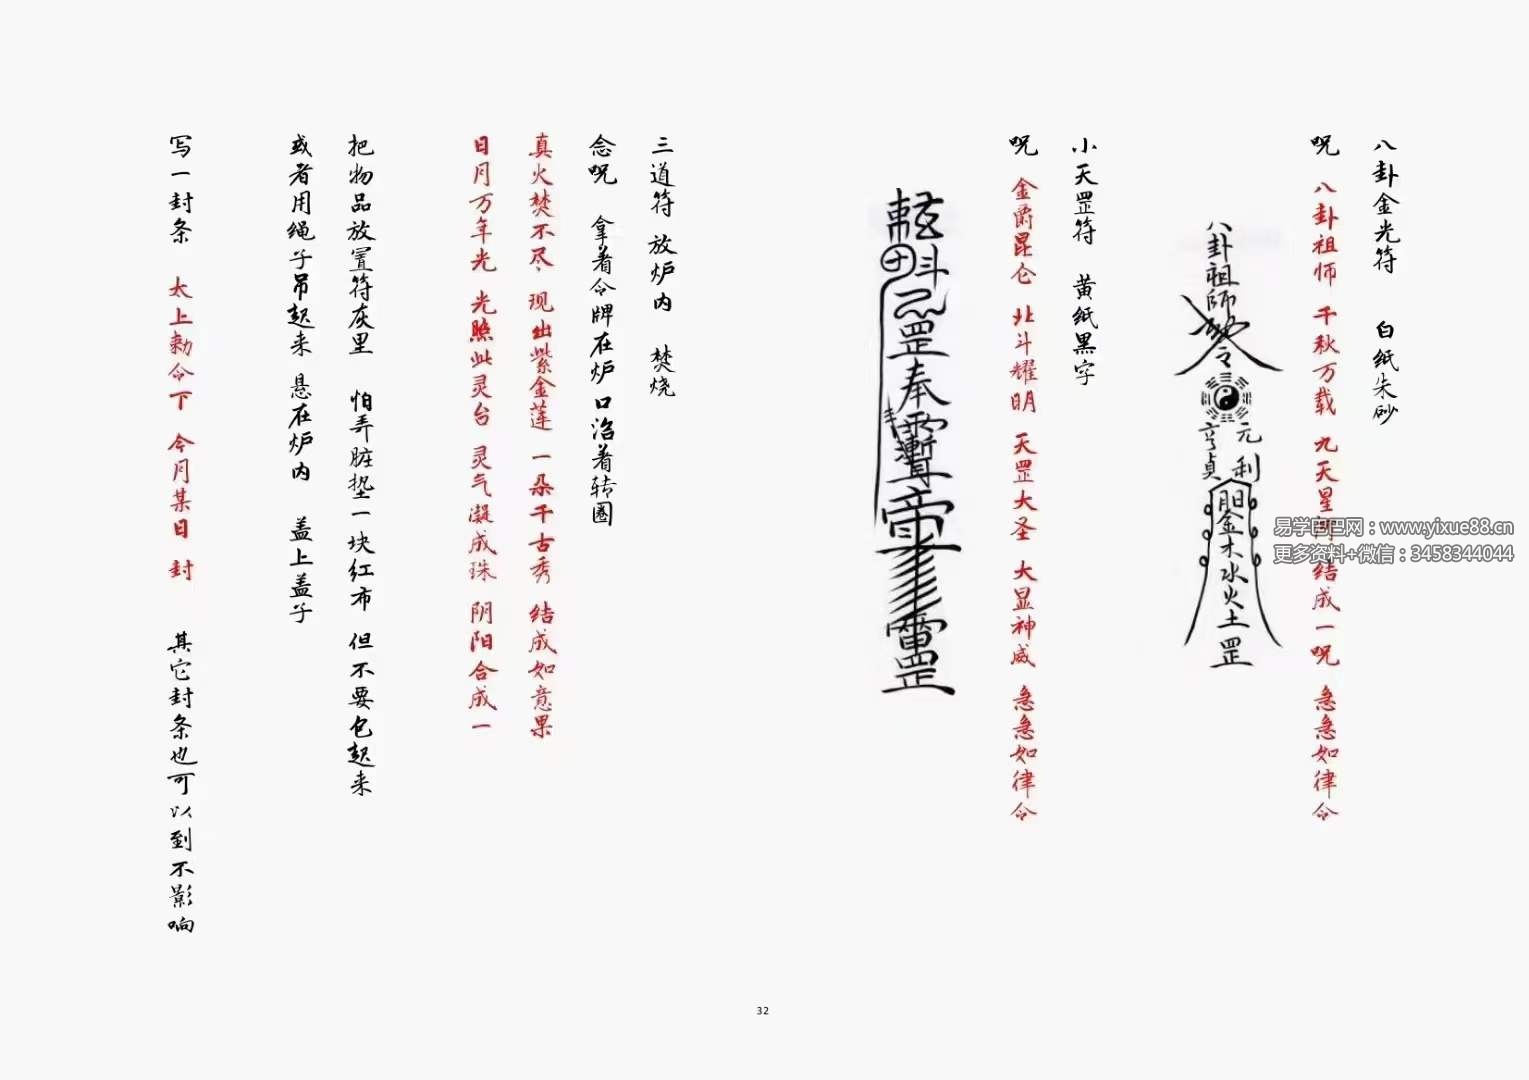 八卦金光符 白纸朱砂
呪 八卦祖师 千秋万载 九天星 结成一呪 急急如律令
八卦祖師
令
元
亨
利
貞
金木水火土罡
小天罡符 黄纸黑字
呪 金爵昆仑 北斗耀明 天罡大圣 大显神威 急急如律令
斗
罡奉
罡
三道符 放炉内 焚烧
念呪 拿着令牌在炉口沿着转圈
真火焚不尽 现出紫金莲 一朵千古秀 结成如意果
日月万年光 光照此灵台 灵气凝成珠 阴阳合成一
把物品放置符灰里 怕弄脏垫一块红布 但不要包起来
或者用绳子吊起来 悬在炉内 盖上盖子
写一封条 太上勅令下 今月某日 封 其它封条也可以到不影响
易学巴巴网：www.yixue88.cn
更多资料+微信：3458344044
32